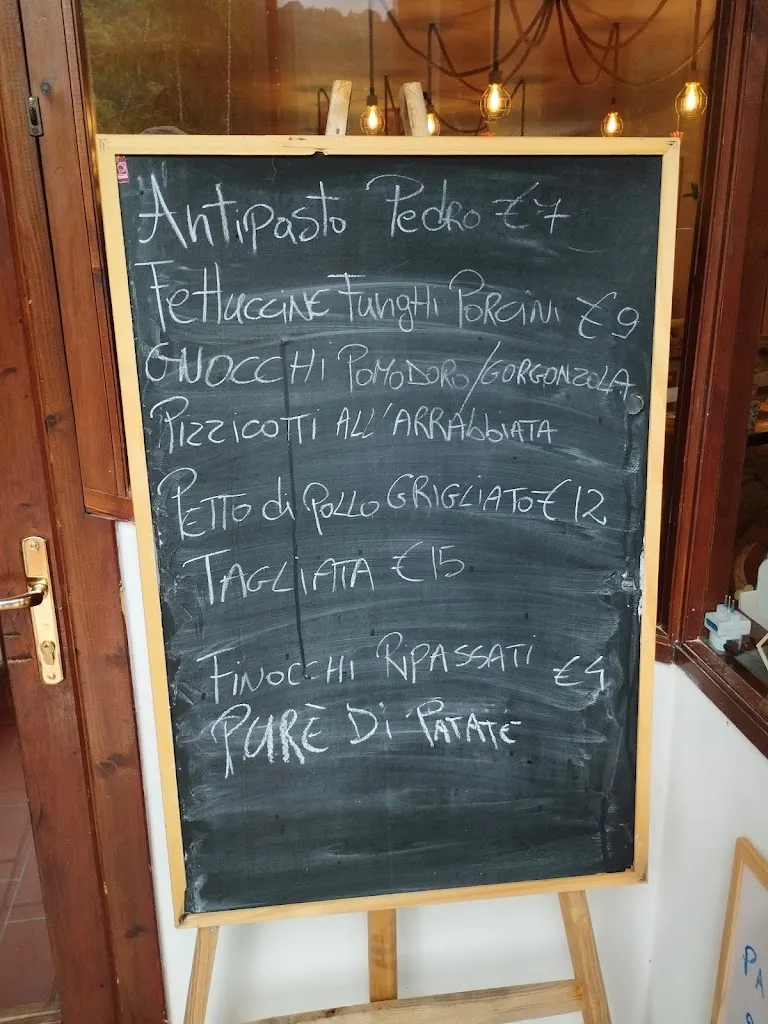 Antipasto Pedro €7
Fettuccine Funghi Porcini €9
GNOCCHI POMODORO/GORGONZOLA
PIZZICOTTI ALL'ARRABBIATA
PETTO di POLLO GRIGLIATO €12
TAGLIATA €15
FINOCCHI RIPASSATI €4
PURÈ Di PATATE
PA